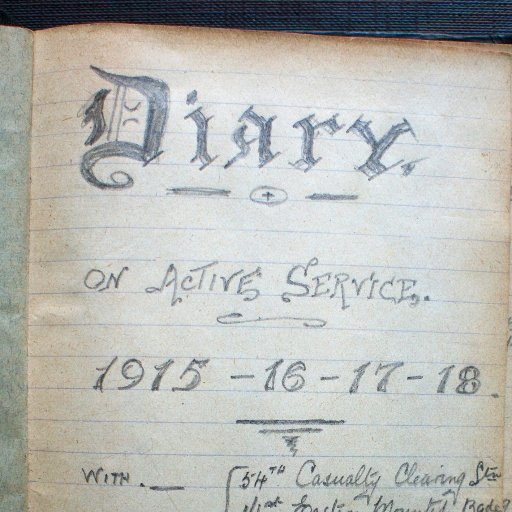 Diary.
ON ACTIVE SERVICE.
1915 - 16 - 17 - 18.
WITH. — 54TH Casualty Clearing Stn
1/1st Eastern Mounted Bade